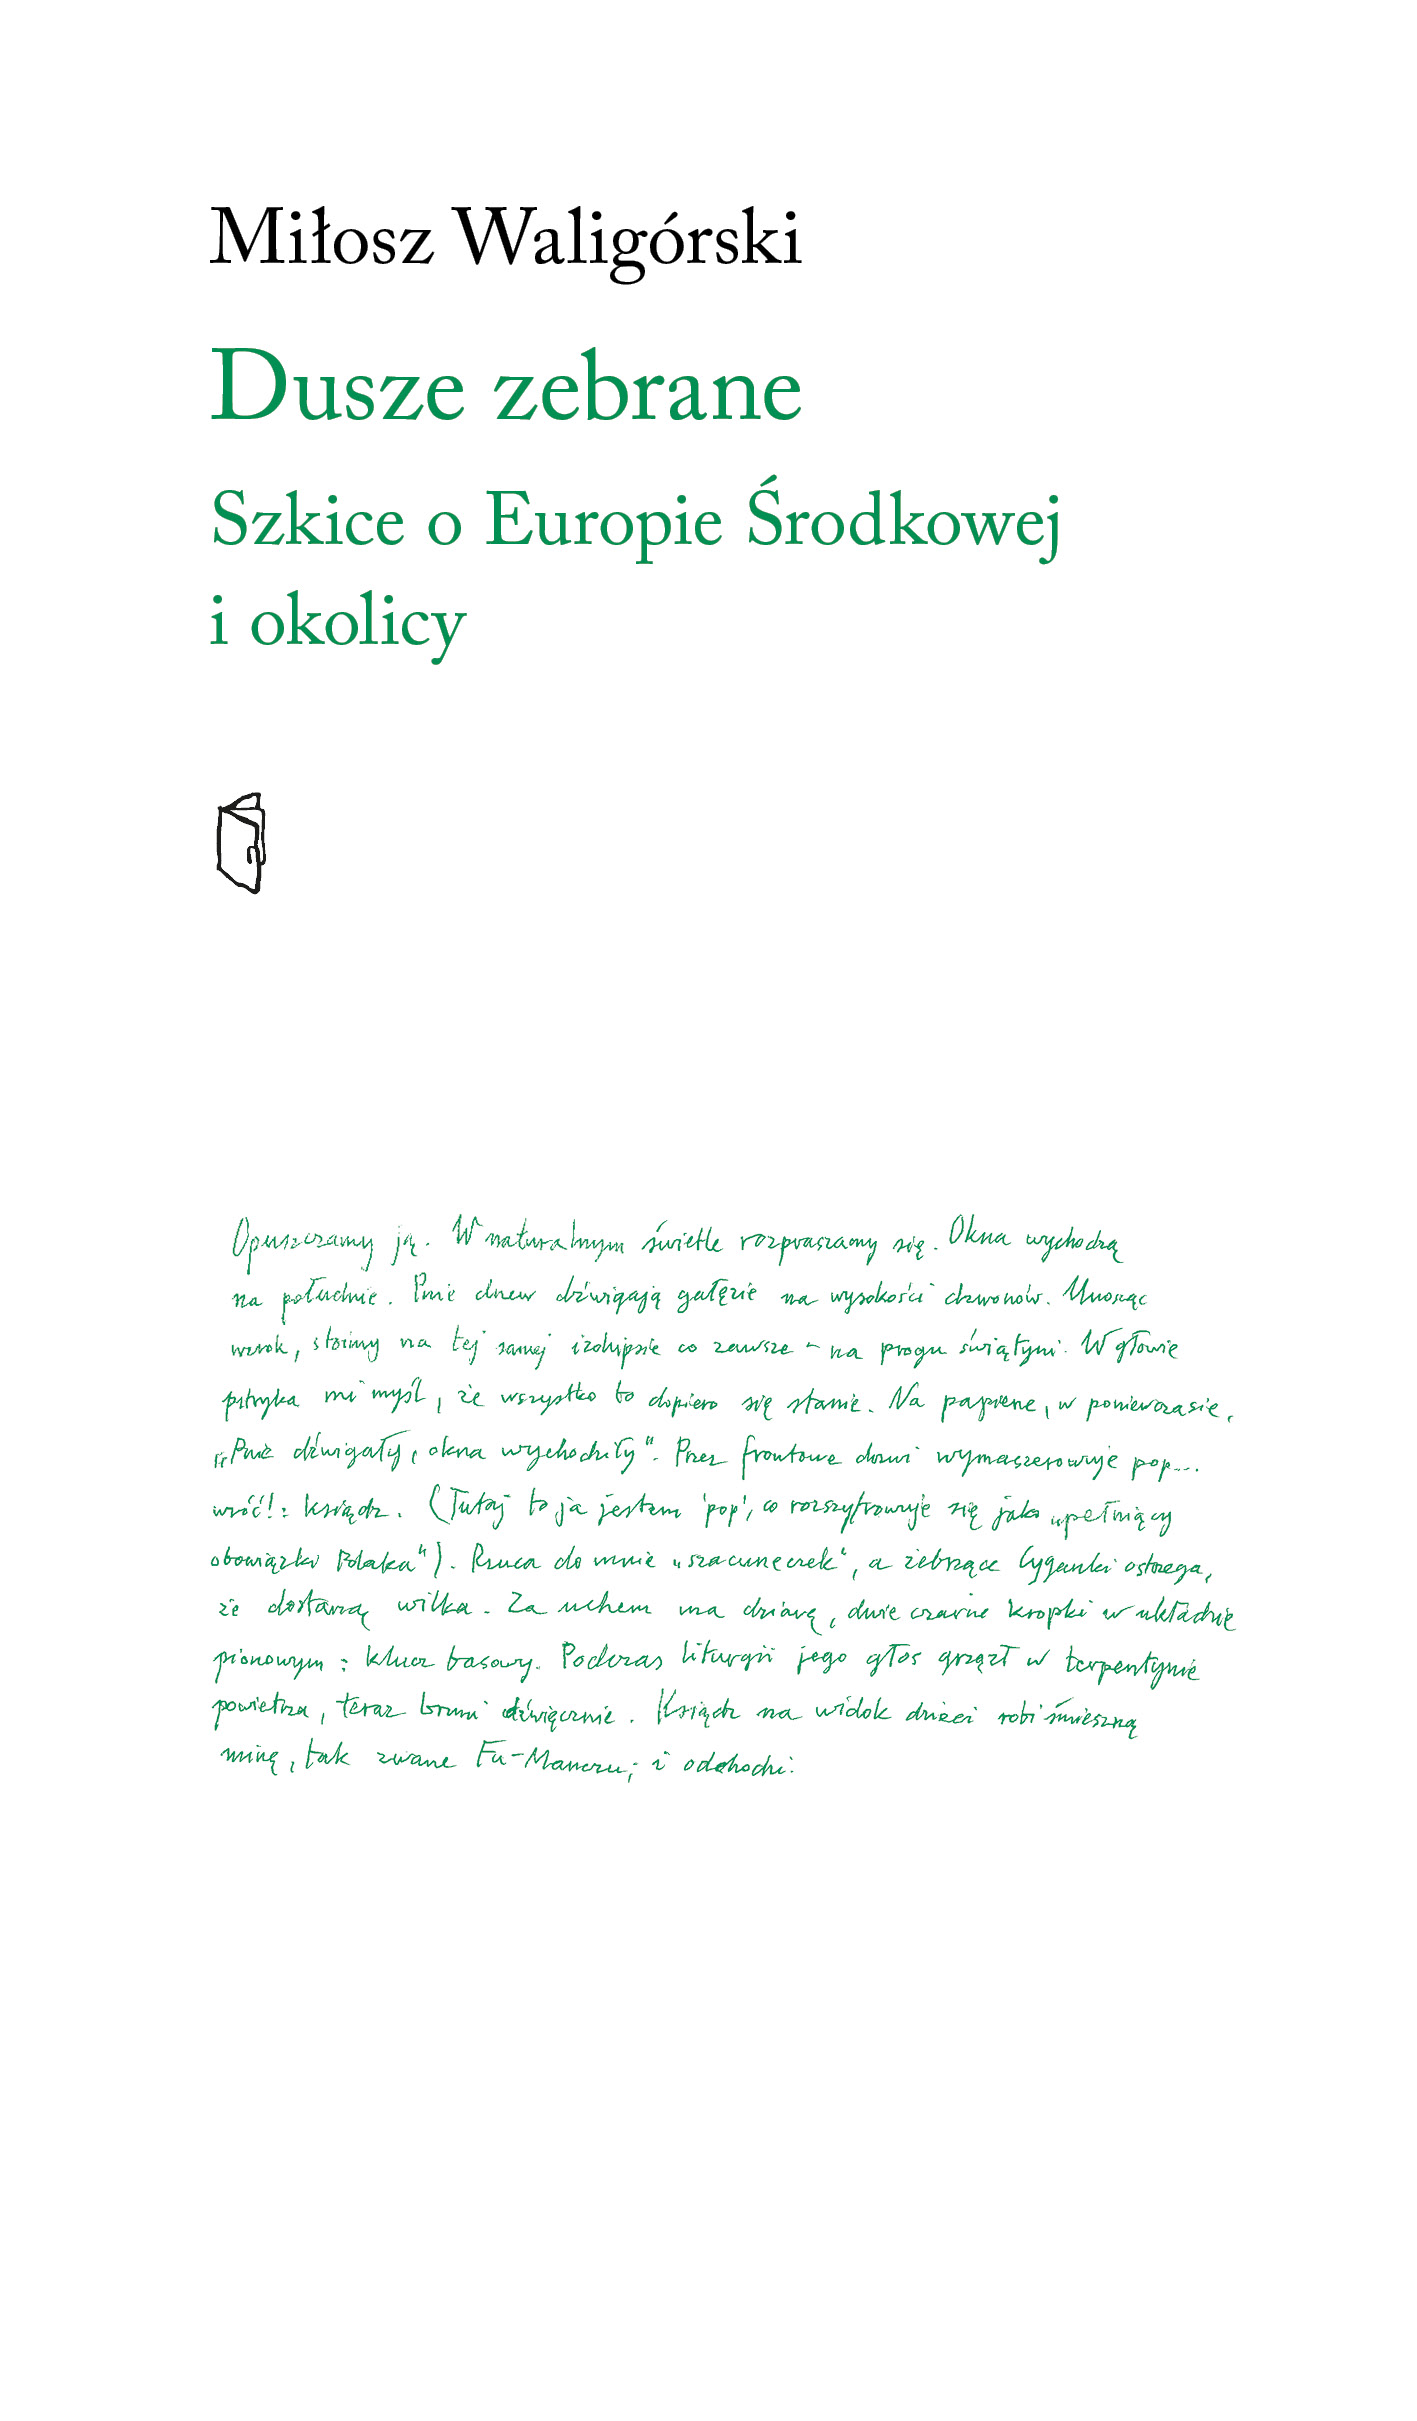 Miłosz Waligórski
Dusze zebrane
Szkice o Europie Środkowej
i okolicy
Opuszczamy ją. W naturalnym świetle rozpraszamy się. Okna wychodzą
na południe. Pnie drzew dźwigają gałęzie na wysokości dzwonów. Unosząc
wzrok, stoimy na tej samej izohipsie co zawsze – na progu świątyni. W głowie
pstryka mi myśl, że wszystko to dopiero się stanie. Na papierze, w poniewczasie,
„Pnie dźwigały, okna wychodziły". Przez frontowe drzwi wymaszerowuje pop...
wróć!: ksiądz. (Tutaj to ja jestem 'pop', co rozszyfrowuje się jako „pełniący
obowiązki Polaka"). Rzuca do mnie „szacuneczek", a żebrzące Cyganki ostrzega,
że dostaną wilka. Za uchem ma dziarę, dwie czarne kropki w układzie
pionowym: klucz basowy. Podczas liturgii jego głos grzązł w terpentynie
powietrza, teraz brzmi dźwięcznie. Ksiądz na widok dzieci robi śmieszną
minę, tak zwane Fu-Manczu; i odchodzi.